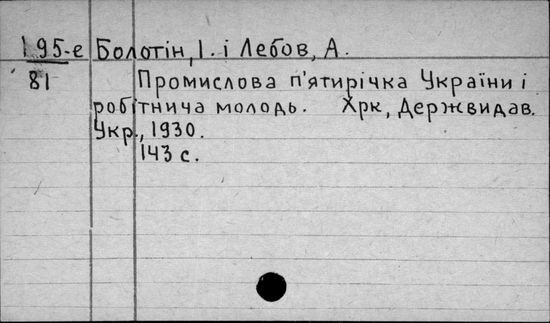 195-е Болотін, І. і Лебов, А.
81 Промислова п'ятирічка України і
робітнича молодь. Хрк, Держвидав.
Укр., 1930.
143 с.